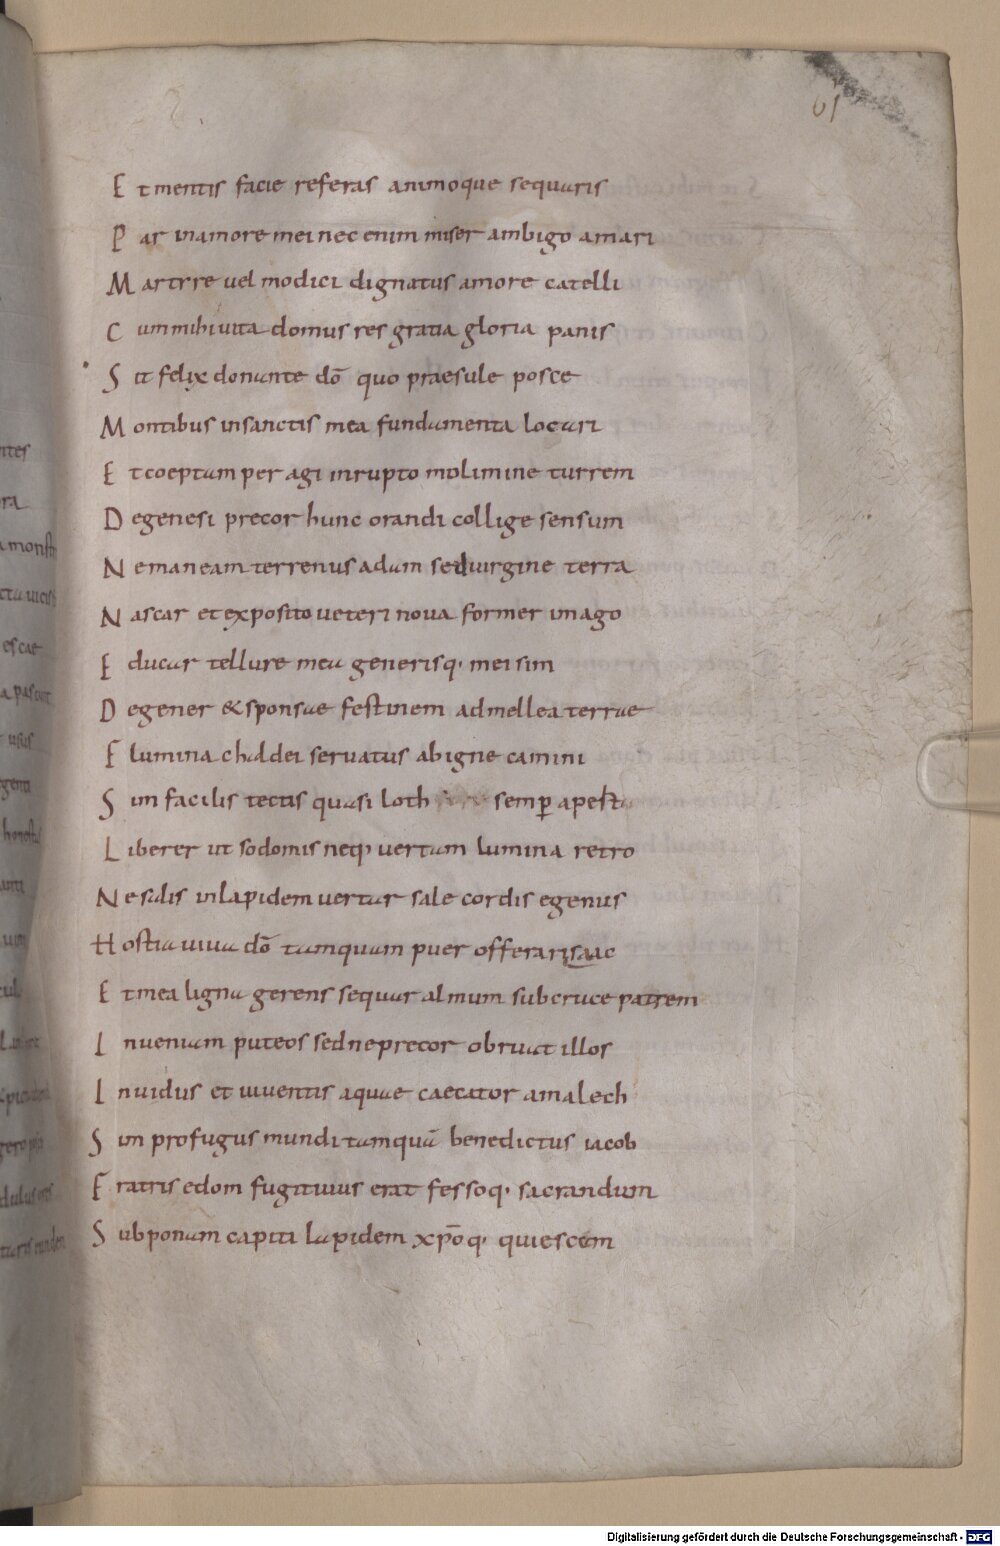 61
Et mentis facie referas animoque sequaris
Par inamore mei nec enim miser ambigo amari
Martyre vel modici dignatus amore catelli
Cum mihi vita domus res gratia gloria panis
Sit felix donante dō quo praesule posce
Montibus insanctis mea fundamenta locari
Et coeptam per agi inrupto molimine turrem
Degenesi precor hunc orandi collige sensum
Ne maneam terrenus adam sed virgine terra
Nascar et exposito veteri nova former imago
Educar tellure mea generisq· mei sim
Degener & sponsae festinem admellea terrae
Flumina chaldei servatus abigne camini
Sim facilis tectis quasi loth semp̄ apesta
Liberer ut sodomis neq· vertam lumina retro
Ne salis inlapidem vertar sale cordis egenus
Hostia viva dō tamquam puer offerar isaac
Et mea ligna gerens sequar almum subcruce patrem
Inveniam puteos sed ne precor obruat illos
Invidus et viventis aquae caecator amalech
Sim profugus mundi tamquā benedictus iacob
Fratris edom fugitivus erat fessoq· sacrandum
Subponam capiti lapidem xp̄oq· quiescam
ntes
ra
escae
usus
Digitalisierung gefördert durch die Deutsche Forschungsgemeinschaft - DFG